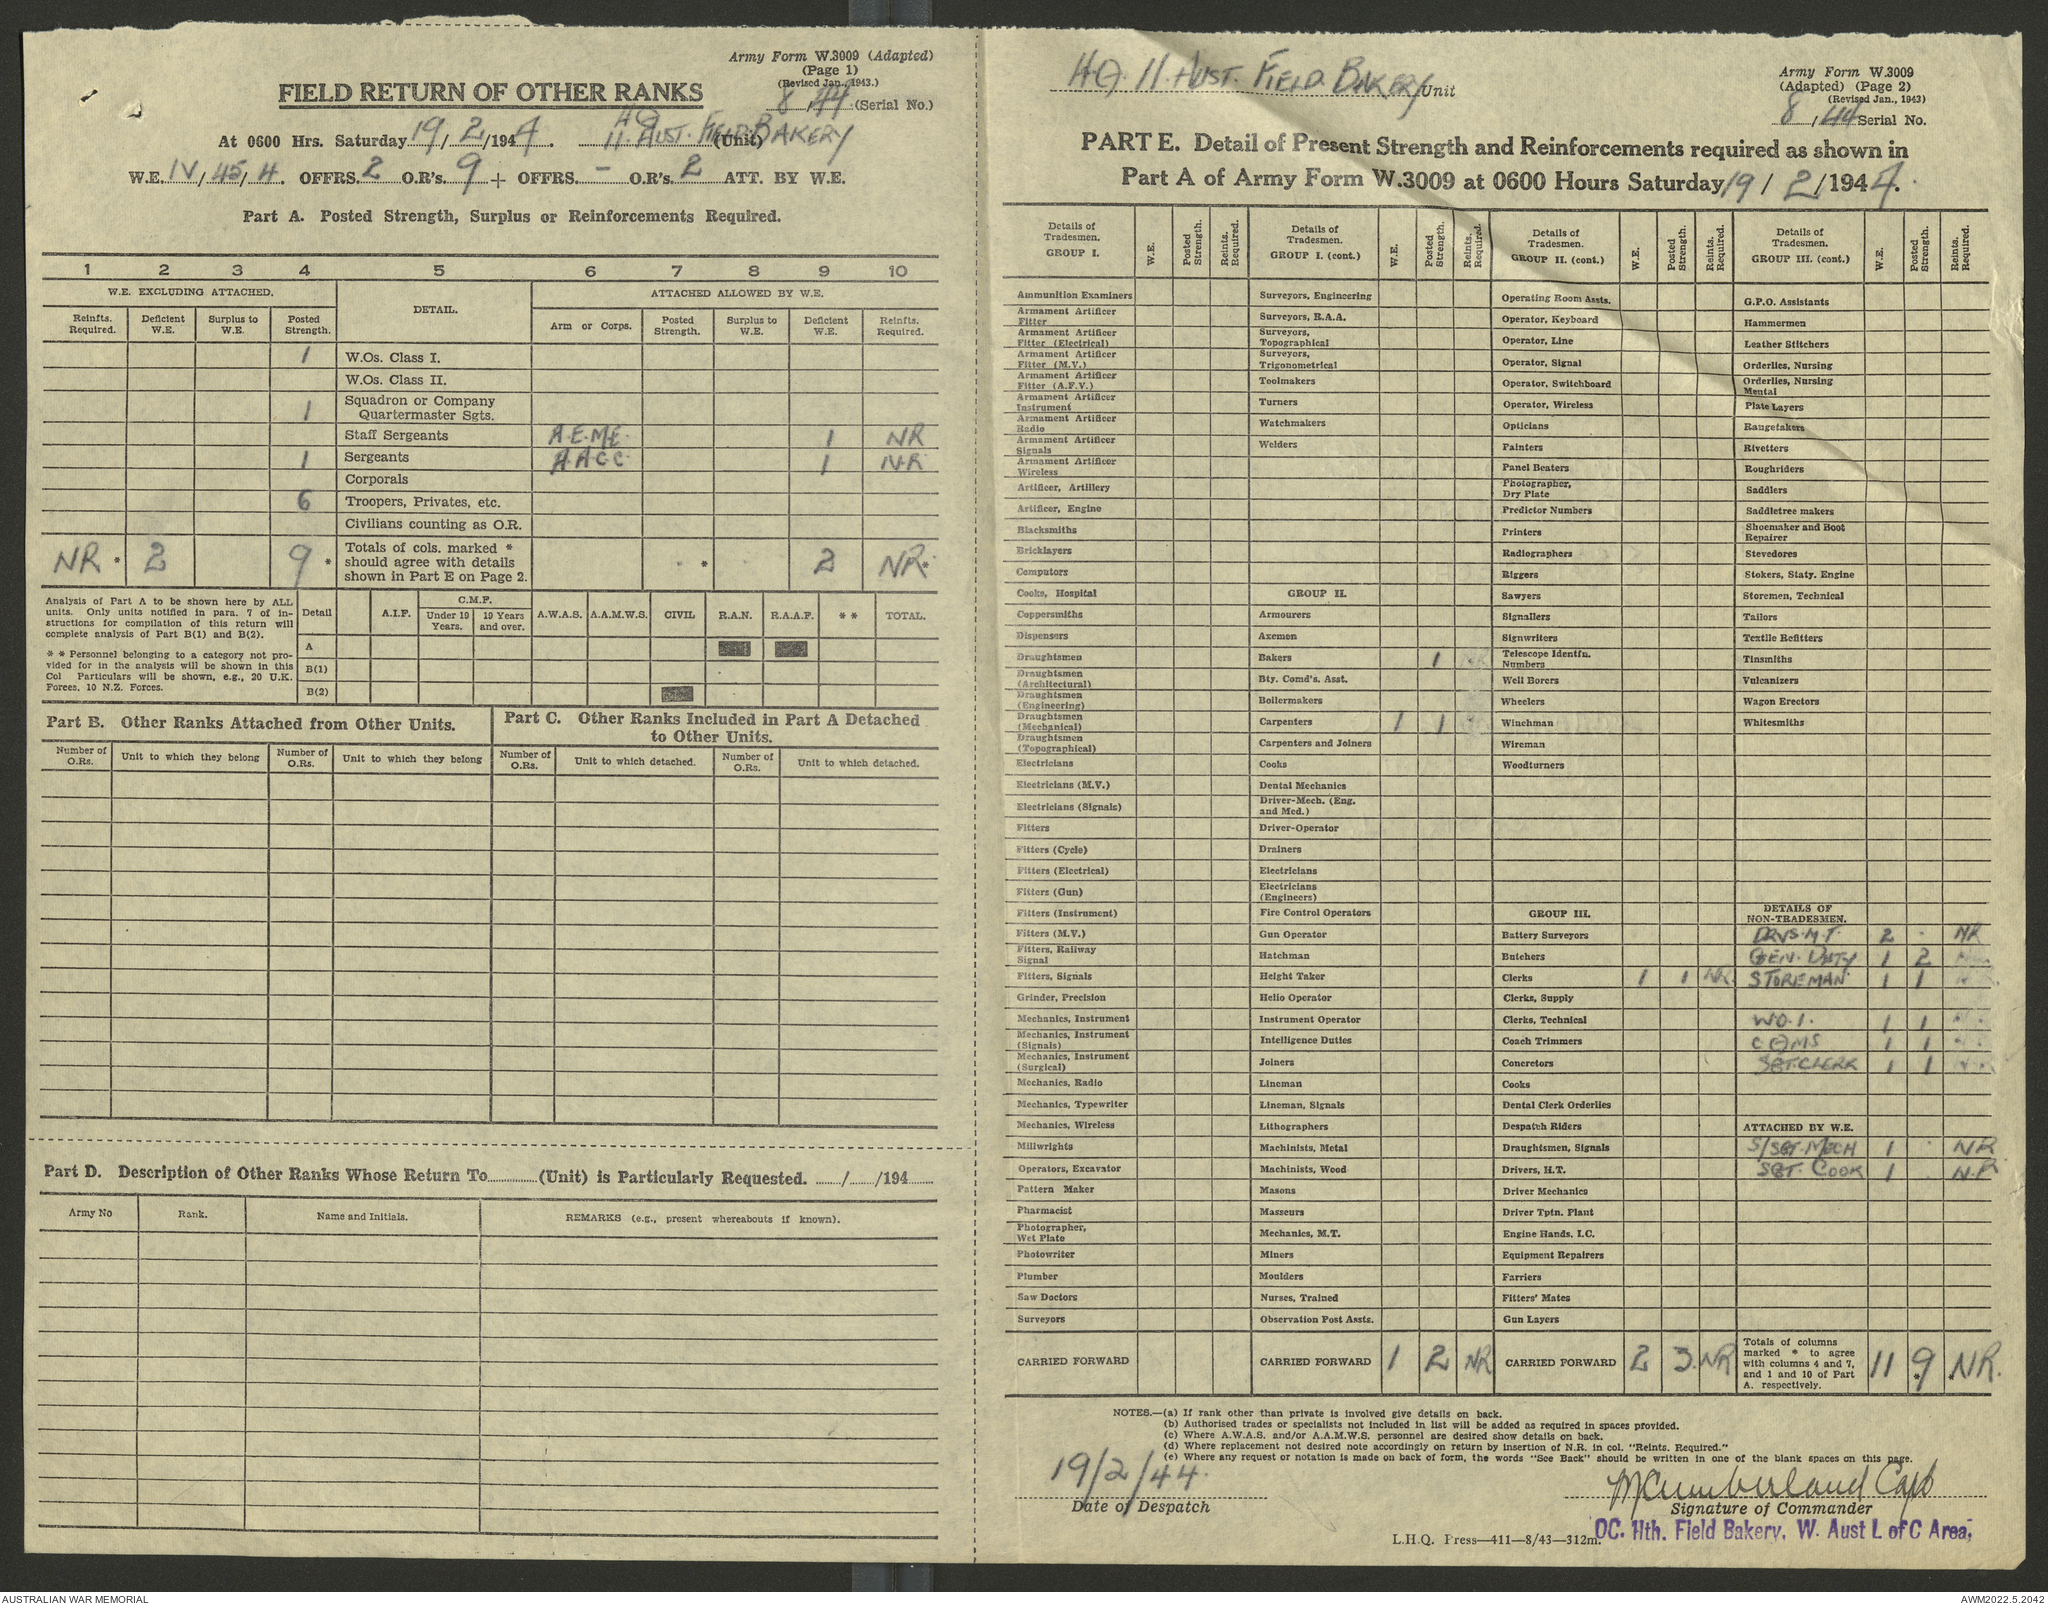 Army Form W.3009 (Adapted)
(Page 1)
(Revised Jan., 1943.)
FIELD RETURN OF OTHER RANKS
8/44 (Serial No.)
HQ
At 0600 Hrs. Saturday 19/2/1944. 11. AUST. FIELD BAKERY (Unit)
W.E. IV/45/4. OFFRS. 2 O.R's. 9 + OFFRS. — O.R's. 2 ATT. BY W.E.
Part A. Posted Strength, Surplus or Reinforcements Required.
1 2 3 4 5 6 7 8 9 10
W.E. EXCLUDING ATTACHED. DETAIL. ATTACHED ALLOWED BY W.E.
Reinfts. Required. Deficient W.E. Surplus to W.E. Posted Strength. Arm or Corps. Posted Strength. Surplus to W.E. Deficient W.E. Reinfts. Required.
1 W.Os. Class I.
W.Os. Class II.
1 Squadron or Company Quartermaster Sgts.
Staff Sergeants A.E.M.E. 1 NR
1 Sergeants A.A.C.C. 1 N.R
Corporals
6 Troopers, Privates, etc.
Civilians counting as O.R.
NR * 2 9 * Totals of cols. marked * should agree with details shown in Part E on Page 2. * 2 NR *
Analysis of Part A to be shown here by ALL units. Only units notified in para. 7 of instructions for compilation of this return will complete analysis of Part B(1) and B(2).
* * Personnel belonging to a category not provided for in the analysis will be shown in this Col Particulars will be shown, e.g., 20 U.K. Forces. 10 N.Z. Forces.
Detail A.I.F. C.M.F. Under 19 Years. 19 Years and over. A.W.A.S. A.A.M.W.S. CIVIL R.A.N. R.A.A.F. * * TOTAL.
A
B(1)
B(2)
Part B. Other Ranks Attached from Other Units.
Number of O.Rs. Unit to which they belong Number of O.Rs. Unit to which they belong
Part C. Other Ranks Included in Part A Detached to Other Units.
Number of O.Rs. Unit to which detached. Number of O.Rs. Unit to which detached.
Part D. Description of Other Ranks Whose Return To............(Unit) is Particularly Requested. ....../....../194......
Army No Rank. Name and Initials. REMARKS (e.g., present whereabouts if known).
HQ. 11. AUST. FIELD. BAKERY Unit
Army Form W.3009
(Adapted) (Page 2)
(Revised Jan., 1943)
8/44 Serial No.
PART E. Detail of Present Strength and Reinforcements required as shown in
Part A of Army Form W.3009 at 0600 Hours Saturday 19/2/1944.
Details of Tradesmen. GROUP I. W.E. Posted Strength. Reints. Required.
Ammunition Examiners
Armament Artificer Fitter
Armament Artificer Fitter (Electrical)
Armament Artificer Fitter (M.V.)
Armament Artificer Fitter (A.F.V.)
Armament Artificer Instrument
Armament Artificer Radio
Armament Artificer Signals
Armament Artificer Wireless
Artificer, Artillery
Artificer, Engine
Blacksmiths
Bricklayers
Computors
Cooks, Hospital
Coppersmiths
Dispensers
Draughtsmen
Draughtsmen (Architectural)
Draughtsmen (Engineering)
Draughtsmen (Mechanical)
Draughtsmen (Topographical)
Electricians
Electricians (M.V.)
Electricians (Signals)
Fitters
Fitters (Cycle)
Fitters (Electrical)
Fitters (Gun)
Fitters (Instrument)
Fitters (M.V.)
Fitters, Railway Signal
Fitters, Signals
Grinder, Precision
Mechanics, Instrument
Mechanics, Instrument (Signals)
Mechanics, Instrument (Surgical)
Mechanics, Radio
Mechanics, Typewriter
Mechanics, Wireless
Millwrights
Operators, Excavator
Pattern Maker
Pharmacist
Photographer, Wet Plate
Photowriter
Plumber
Saw Doctors
Surveyors
CARRIED FORWARD
Details of Tradesmen. GROUP I. (cont.) W.E. Posted Strength. Reints. Required.
Surveyors, Engineering
Surveyors, R.A.A.
Surveyors, Topographical
Surveyors, Trigonometrical
Toolmakers
Turners
Watchmakers
Welders
GROUP II.
Armourers
Axemen
Bakers 1 NR
Bty. Comd's. Asst.
Boilermakers
Carpenters 1 1
Carpenters and Joiners
Cooks
Dental Mechanics
Driver-Mech. (Eng. and Med.)
Driver-Operator
Drainers
Electricians
Electricians (Engineers)
Fire Control Operators
Gun Operator
Hatchman
Height Taker
Helio Operator
Instrument Operator
Intelligence Duties
Joiners
Lineman
Lineman, Signals
Lithographers
Machinists, Metal
Machinists, Wood
Masons
Masseurs
Mechanics, M.T.
Miners
Moulders
Nurses, Trained
Observation Post Assts.
CARRIED FORWARD 1 2 NR
Details of Tradesmen. GROUP II. (cont.) W.E. Posted Strength. Reints. Required.
Operating Room Assts.
Operator, Keyboard
Operator, Line
Operator, Signal
Operator, Switchboard
Operator, Wireless
Opticians
Painters
Panel Beaters
Photographer, Dry Plate
Predictor Numbers
Printers
Radiographers
Riggers
Sawyers
Signallers
Signwriters
Telescope Identfn. Numbers
Well Borers
Wheelers
Winchman
Wireman
Woodturners
GROUP III.
Battery Surveyors
Butchers
Clerks 1 1 NR.
Clerks, Supply
Clerks, Technical
Coach Trimmers
Concretors
Cooks
Dental Clerk Orderlies
Despatch Riders
Draughtsmen, Signals
Drivers, H.T.
Driver Mechanics
Driver Tptn. Plant
Engine Hands, I.C.
Equipment Repairers
Farriers
Fitters' Mates
Gun Layers
CARRIED FORWARD 2 3. NR
Details of Tradesmen. GROUP III. (cont.) W.E. Posted Strength. Reints. Required.
G.P.O. Assistants
Hammermen
Leather Stitchers
Orderlies, Nursing
Orderlies, Nursing Mental
Plate Layers
Rangetakers
Rivetters
Roughriders
Saddlers
Saddletree makers
Shoemaker and Boot Repairer
Stevedores
Stokers, Staty. Engine
Storemen, Technical
Tailors
Textile Refitters
Tinsmiths
Vulcanizers
Wagon Erectors
Whitesmiths
DETAILS OF NON-TRADESMEN.
DRVS. M.T. 2 . NR
GEN. DUTY 1 2
STOREMAN 1 1
W.O.1. 1 1
CQMS 1 1
SGT. CLERK 1 1
ATTACHED BY W.E.
S/SGT. MECH 1 . NR
SGT. COOK 1 . N.R
Totals of columns marked * to agree with columns 4 and 7, and 1 and 10 of Part A. respectively. 11 9 * * NR.
NOTES.—(a) If rank other than private is involved give details on back.
(b) Authorised trades or specialists not included in list will be added as required in spaces provided.
(c) Where A.W.A.S. and/or A.A.M.W.S. personnel are desired show details on back.
(d) Where replacement not desired note accordingly on return by insertion of N.R. in col. "Reints. Required."
(e) Where any request or notation is made on back of form, the words "See Back" should be written in one of the blank spaces on this page.
19/2/44.
Date of Despatch
Cumberland Capt
Signature of Commander
OC. 11th. Field Bakery, W. Aust L of C Area,
L.H.Q. Press—411—8/43—312m.
AUSTRALIAN WAR MEMORIAL
AWM2022.5.2042